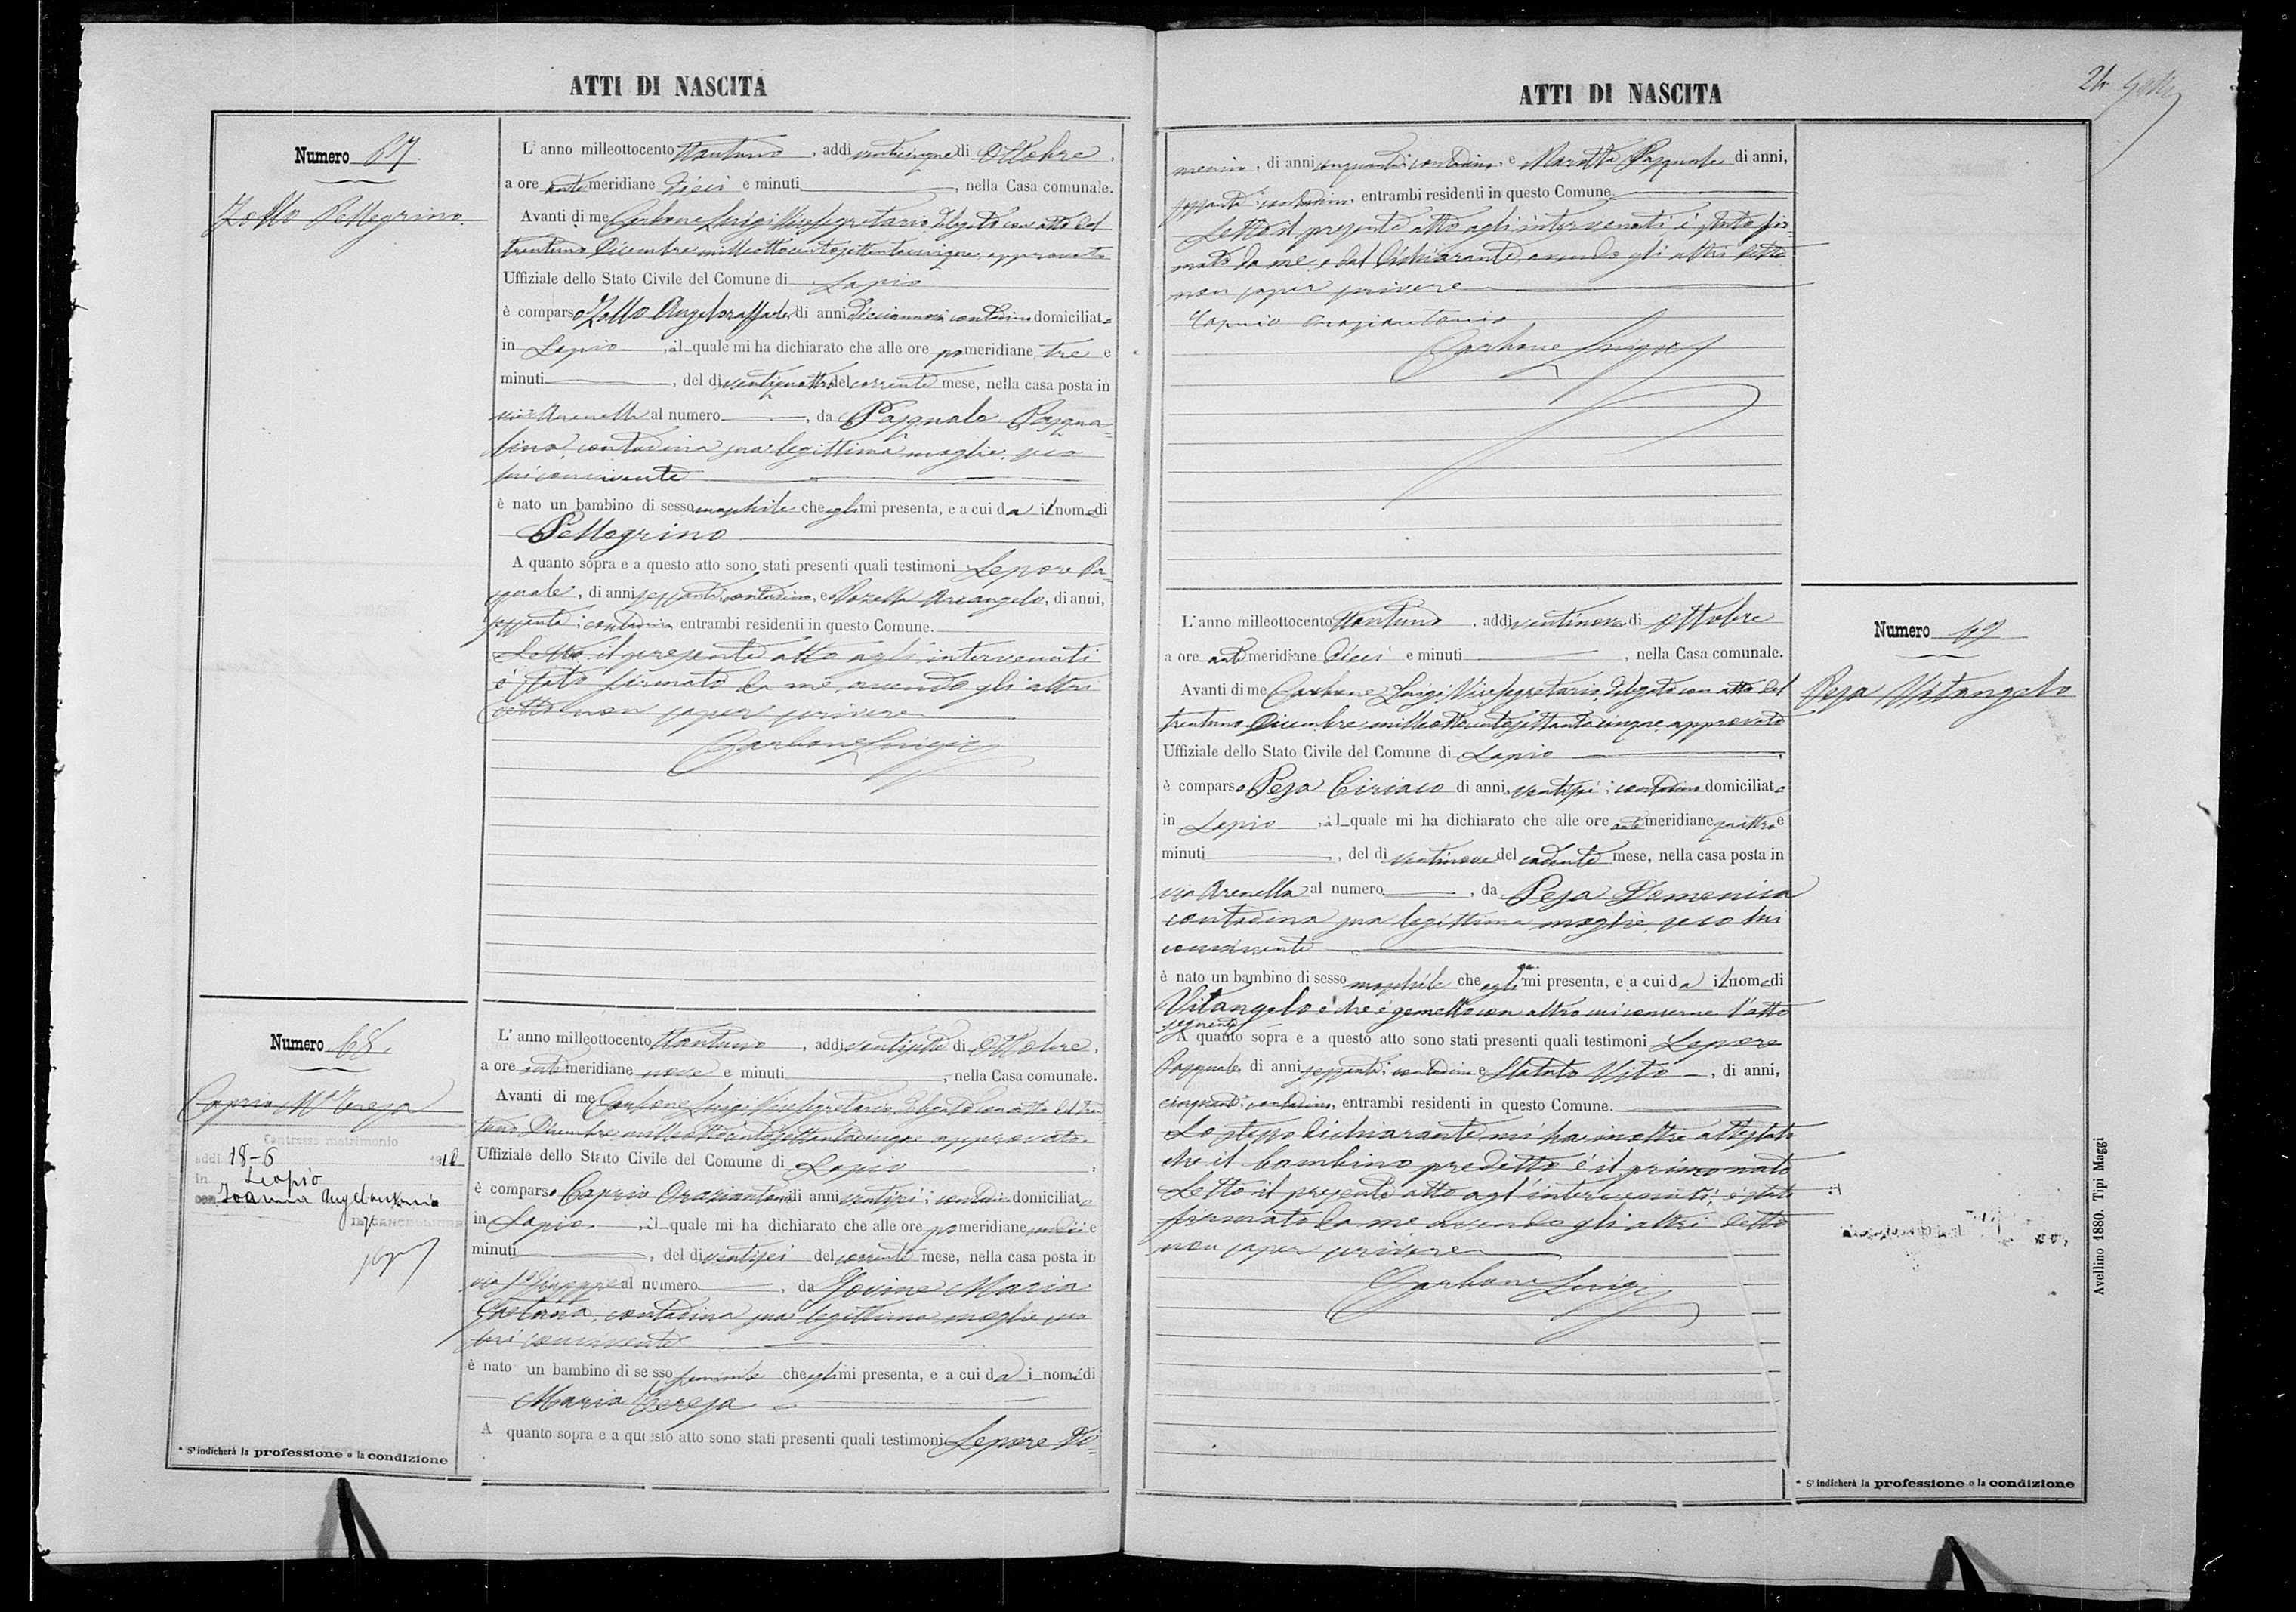 ATTI DI NASCITA
Numero 67.
Zollo Pellegrino.
L'anno milleottocento ottantuno, addì venticinque di Ottobre,
a ore antemeridiane dieci e minuti, nella Casa comunale.
Avanti di me Carbone Luigi Vicesegretario delegato con atto del
trentuno Dicembre milleottocentosettantacinque approvato
Uffiziale dello Stato Civile del Comune di Lapio
è comparso Zollo Angeloraffaele, di anni contadino domiciliato
in Lapio, il quale mi ha dichiarato che alle ore pomeridiane tre e
minuti, del dì ventiquattro del corrente mese, nella casa posta in
via Arenella al numero, da Pasquale Pasqua-
lina, contadina sua legittima moglie, seco
lui convivente
è nato un bambino di sesso maschile che egli mi presenta, e a cui da il nome di
Pellegrino
A quanto sopra e a questo atto sono stati presenti quali testimoni Lepore Pa-
squale, di anni sessanta, contadino, e Arcangelo, di anni,
sessanta, contadino, entrambi residenti in questo Comune.
Letto il presente atto agli intervenuti
è stato firmato da me, avendo gli altri
detto non saper scrivere
Carbone Luigi
Numero 68.
Caprio Mª Teresa
Contrasse matrimonio
addì 18-6 1912
in Lapio
con Angelantonio
IL CANCELLIERE
L'anno milleottocento ottantuno, addì ventisette di Ottobre,
a ore antemeridiane nove e minuti, nella Casa comunale.
Avanti di me Carbone Luigi Vicesegretario, delegato con atto del tren-
tuno Dicembre milleottocentosettantacinque approvato
Uffiziale dello Stato Civile del Comune di Lapio
è comparso Caprio Oraziantonio di anni ventisei, contadino domiciliato
in Lapio, il quale mi ha dichiarato che alle ore pomeridiane undici e
minuti, del dì ventisei del corrente mese, nella casa posta in
via S. Giuseppe al numero, da Iovine Maria
Gaetana, contadina sua legittima moglie seco
lui convivente
è nato un bambino di sesso femminile che egli mi presenta, e a cui da i nome di
Maria Teresa
A quanto sopra e a questo atto sono stati presenti quali testimoni Lepore Do-
* S'indicherà la professione o la condizione
ATTI DI NASCITA
24
menico, di anni cinquanta, contadino, e Marotta Pasquale di anni,
sessanta, contadino, entrambi residenti in questo Comune.
Letto il presente atto agli intervenuti è stato fir-
mato da me e dal dichiarante, avendo gli altri detto
non saper scrivere
Caprio Oraziantonio
Carbone Luigi
Numero 69
Pesa Vitangelo
L'anno milleottocento ottantuno, addì ventinove di Ottobre
a ore antemeridiane dieci e minuti, nella Casa comunale.
Avanti di me Carbone Luigi Vicesegretario delegato con atto del
trentuno Dicembre milleottocentosettantacinque approvato
Uffiziale dello Stato Civile del Comune di Lapio
è comparso Pesa Ciriaco di anni ventisei, contadino domiciliato
in Lapio, il quale mi ha dichiarato che alle ore antemeridiane quattro e
minuti, del dì ventinove del cadente mese, nella casa posta in
via Arenella al numero, da Pesa Domenica
contadina sua legittima moglie, seco lui
convivente
è nato un bambino di sesso maschile che egli mi presenta, e a cui da il nome di
Vitangelo e che è gemello con altro cui concerne l'atto
seguente
A quanto sopra e a questo atto sono stati presenti quali testimoni Lepore
Pasquale, di anni sessanta, contadino e Statuto Vito, di anni,
cinquanta, contadino, entrambi residenti in questo Comune.
Lo stesso dichiarante mi ha inoltre attestato
che il bambino predetto è il primo nato
Letto il presente atto agl'intervenuti, è stato
firmato da me avendo gli altri detto
non saper scrivere
Carbone Luigi
* S'indicherà la professione o la condizione
Avellino 1880. Tipi Maggi